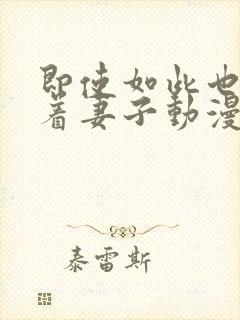 即使如此也
着妻子動漫
泰雷斯